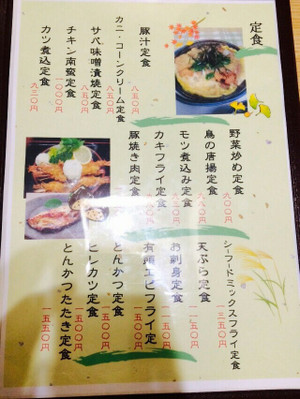 定食
豚汁定食
八五〇円
カニ・コーンクリーム定食
サバ味噌漬焼定食
八五〇円
チキン南蛮定食
一〇〇〇円
カツ煮込定食
九三〇円
野菜炒め定食
八〇〇円
鳥の唐揚定食
モツ煮込み定食
カキフライ定食
豚焼き肉定食
シーフードミックスフライ定食
一三五〇円
天ぷら定食
お刺身定食
有頭エビフライ定
とんかつ定食
一五〇〇円
ヒレカツ定食
一五〇〇円
とんかつたたき定食
一五五〇円